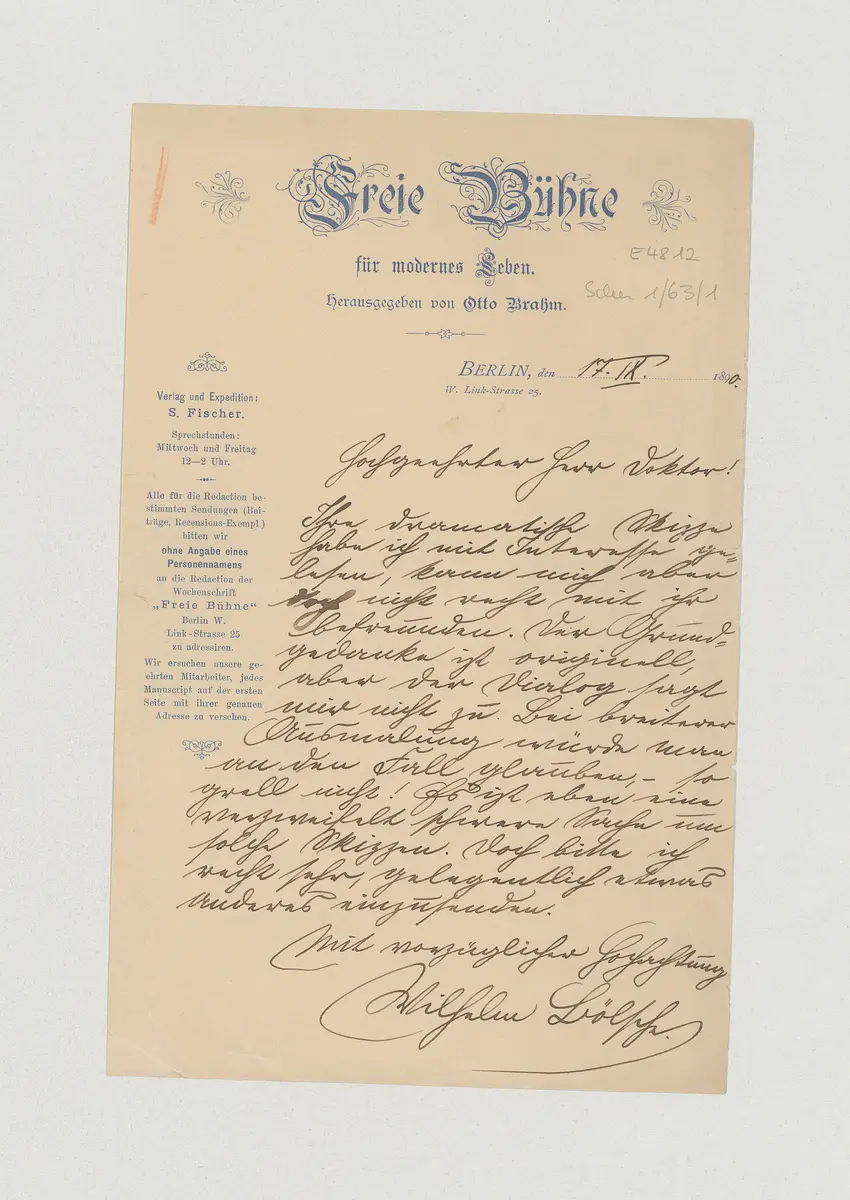 Freie Bühne
für modernes Leben.
Herausgegeben von Otto Brahm.
E4812
1/63/1
BERLIN, den 17. IX. 1890.
W. Link-Strasse 25.
Verlag und Expedition:
S. Fischer.
Sprechstunden:
Mittwoch und Freitag
12—2 Uhr.
Alle für die Redaction be-
stimmten Sendungen (Bei-
träge, Recensions-Exempl.)
bitten wir
ohne Angabe eines
Personennamens
an die Redaction der
Wochenschrift
„Freie Bühne“
Berlin W.
Link-Strasse 25
zu adressiren.
Wir ersuchen unsere ge-
ehrten Mitarbeiter, jedes
Manuscript auf der ersten
Seite mit ihrer genauen
Adresse zu versehen.
Hochgeehrter Herr Doktor!
Ihre dramatische Skizze
habe ich mit Interesse ge-
lesen, kann mich aber
nicht recht mit ihr
befreunden. Der Grund-
gedanke ist originell,
aber der Dialog sagt
mir nicht zu. Bei breiterer
Ausmalung würde man
an den Fall glauben, – so
grell nicht! Es ist eben eine
verzweifelt schwere Sache um
solche Skizzen. Doch bitte ich
recht sehr, gelegentlich etwas
anderes einzusenden.
Mit vorzüglicher Hochachtung
Wilhelm Bölsche.